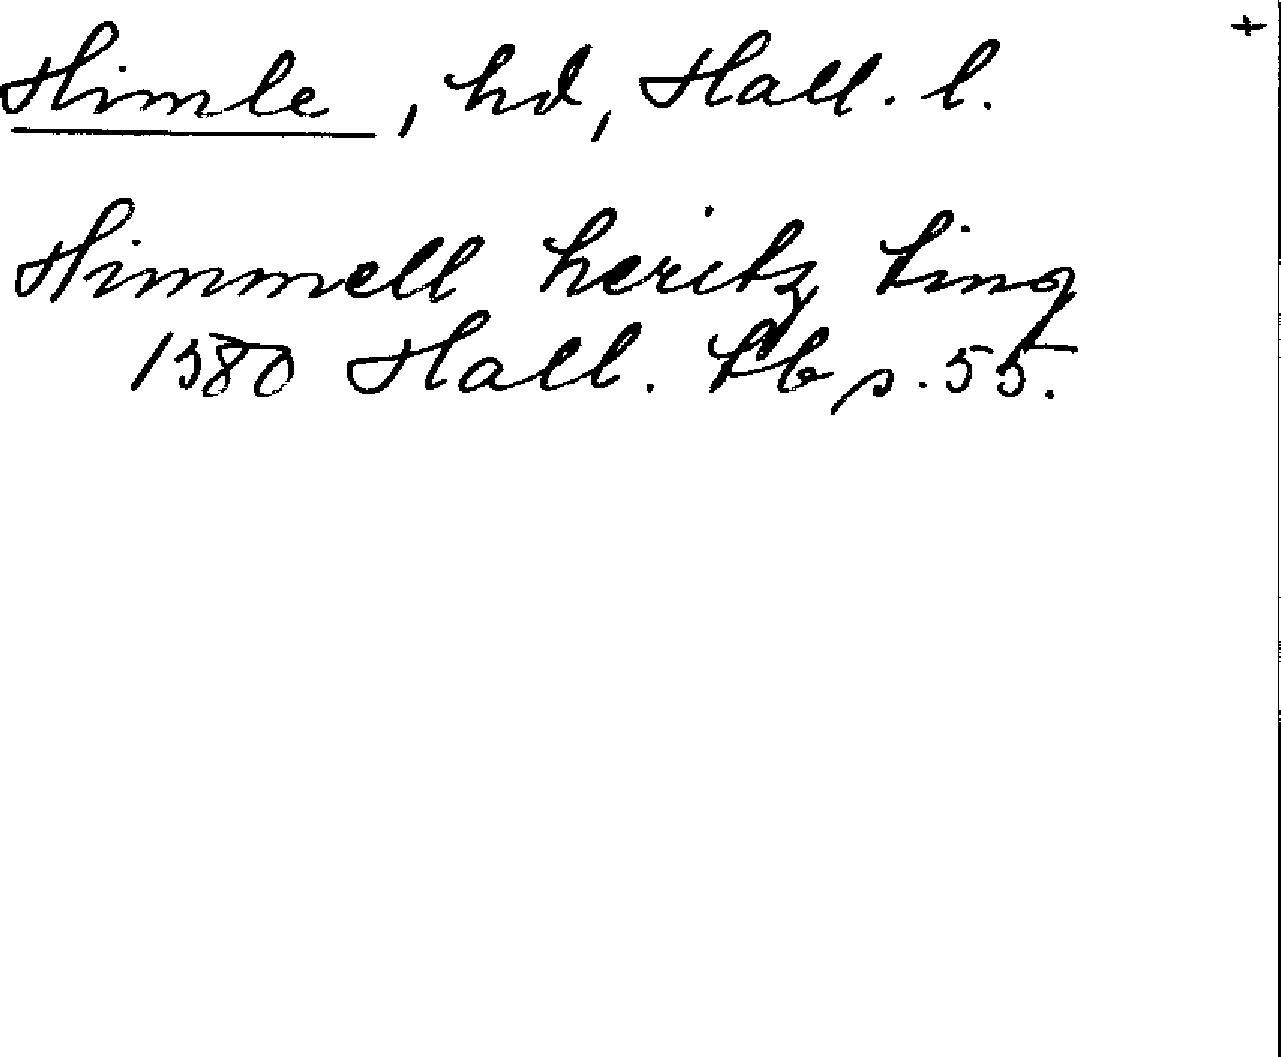 +
Himle, hd, Hall. l.
Himmell heritz ting
1580 Hall. tb s. 55.